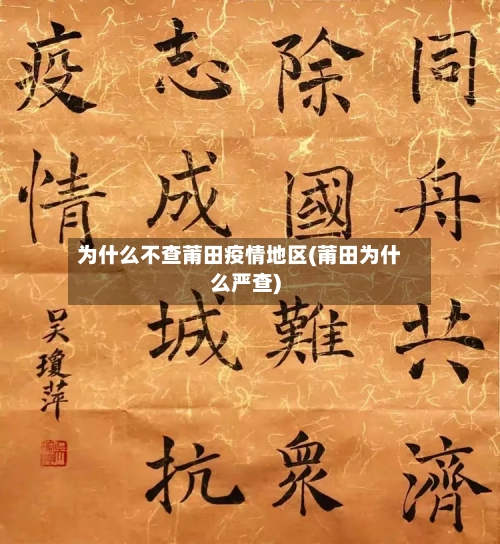 同舟共濟
除國難衆
志成城抗
疫情
吴瓊萍
为什么不查莆田疫情地区(莆田为什
么严查)